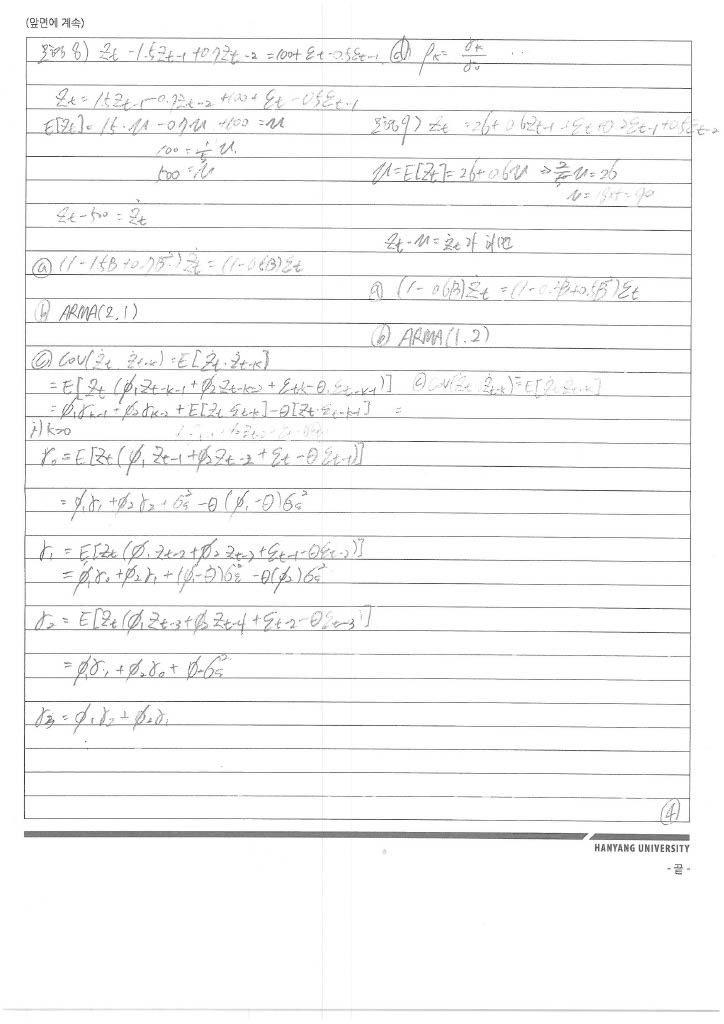 (앞면에 계속)
문제 8) Zt -1.5Zt-1 +0.7Zt-2 = 100+ εt -0.5εt-1
Zt = 1.5Zt-1 -0.7Zt-2 +100+ εt -0.5εt-1
E[Zt]= 1.5·μ -0.7μ +100 = μ
100 = 1/5 μ.
500 = μ
Zt -500 = Żt
ⓐ (1-1.5B+0.7B²) Żt = (1-0.5B)εt
ⓑ ARMA(2,1)
ⓒ COV(Żt, Żt-k) = E[Żt·Żt-k]
= E[Żt (φ1Zt-k-1 + φ2Zt-k-2 + εt-k -θ1εt-k-1)]
= φ1γk-1 + φ2γk-2 + E[Zt εt-k] -θ[Zt·εt-k-1]
i) k=0
γ0 = E[Zt(φ1 Zt-1 + φ2Zt-2 + εt -θεt-1)]
= φ1γ1 + φ2γ2 + σε² -θ(φ1-θ)σε²
γ1 = E[Zt(φ1Zt-2 + φ2Zt-3 + εt-1 -θεt-2)]
= φ1γ0 + φ2γ1 + (φ1-θ)σε² -θ(φ2)σε²
γ2 = E[Zt(φ1Zt-3 + φ2Zt-4 + εt-2 -θεt-3)]
= φ1γ1 + φ2γ0 +
γ3 = φ1γ2 + φ2γ1
ⓓ ρk = γk/γ0 ...
문제 9) Zt = 26+0.6Zt-1 + εt +0.2εt-1 +0.5εt-2
μ = E[Zt] = 26+0.6μ ⇒ μ = 26
Zt -μ = Żt 라 하면
ⓐ (1-0.6B)Żt = (1-0.2B+0.5B²)εt
ⓑ ARMA(1,2)
ⓒ COV(Żt, Żt-k) = E[Żt Żt-k]
=
④
HANYANG UNIVERSITY
- 끝 -